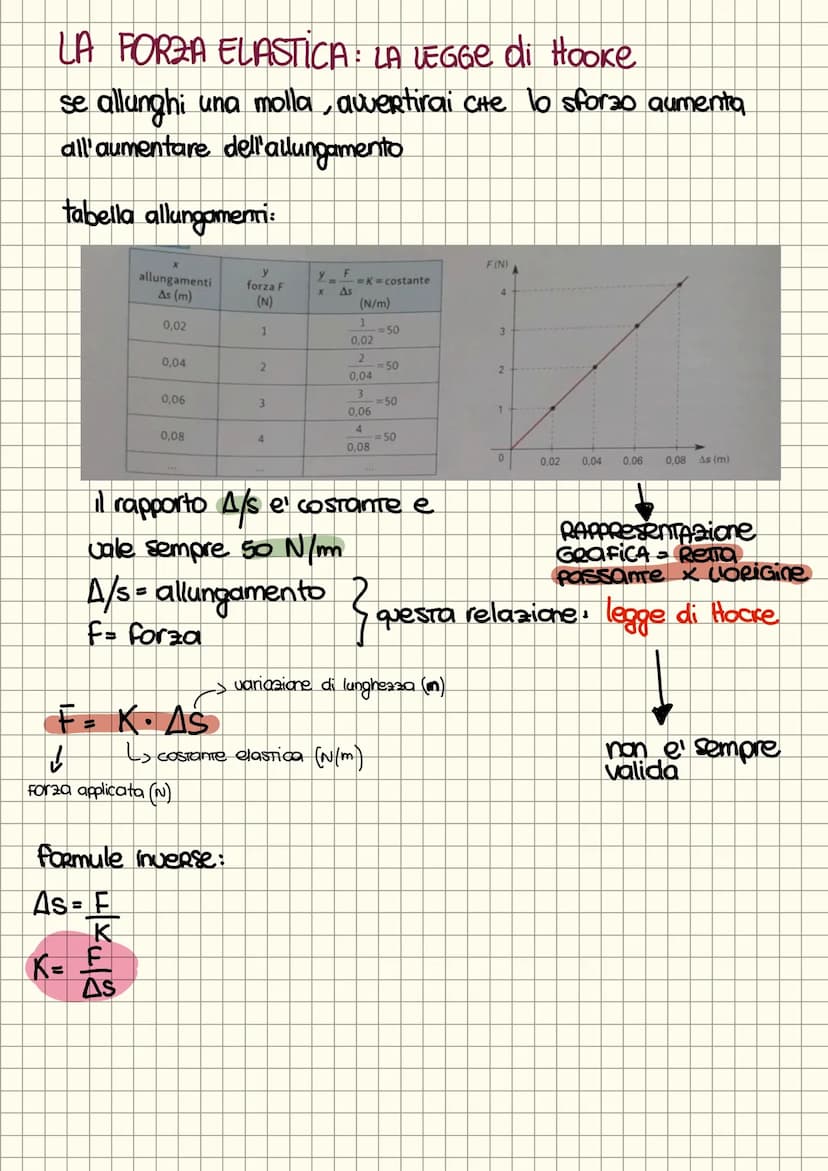 LA FORZA ELASTICA: LA LEGGE di Hooke
se allunghi una molla, avvertirai CHE lo sforzo aumenta
all'aumentare dell'allungamento
tabella allungamenti:
x
allungamenti
Δs (m)
y
forza F
(N)
y/x = F/Δs = K = costante
(N/m)
0,02 1 1/0,02 = 50
0,04 2 2/0,04 = 50
0,06 3 3/0,06 = 50
0,08 4 4/0,08 = 50
... ... ...
F (N)
4
3
2
1
0 0,02 0,04 0,06 0,08 Δs (m)
il rapporto Δ/s e' costante e
vale sempre 50 N/m
Δ/s = allungamento
F= forza
questa relazione: legge di Hooke
RAPPRESENTAzione
GRAFICA = Retta
passante x l'origine
non e' sempre
valida
variazione di lunghezza (m)
F = K · ΔS
costante elastica (N/m)
Forza applicata (N)
formule inverse:
ΔS = F/K
K = F/ΔS